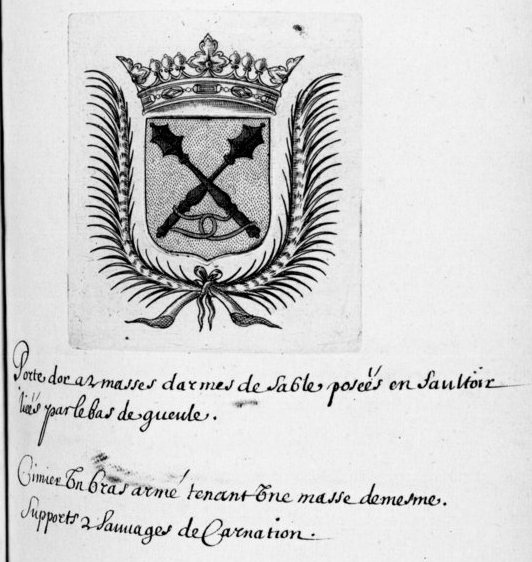 Porte dor a 2 masses darmes de sable poseés en Saultoir
lieés par le bas de gueule.
Cimier Un bras armé tenant Une masse de mesme.
Supports 2 Sauuages de Carnation.